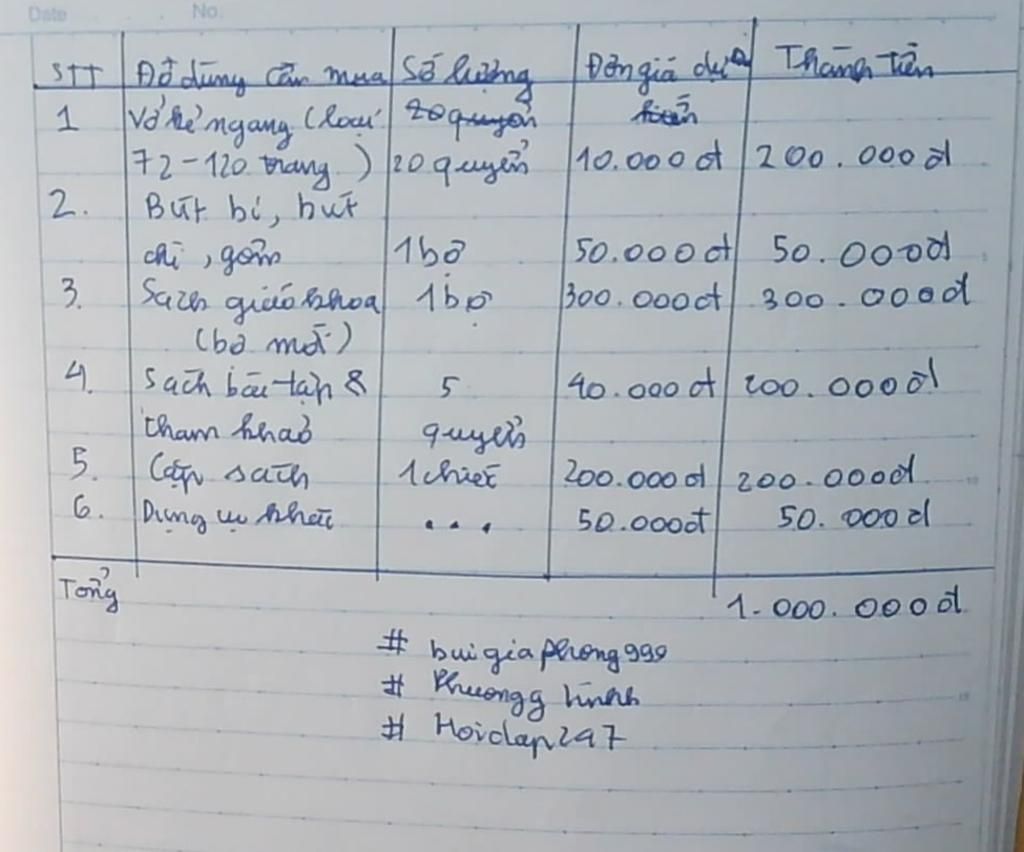 Date No.
STT Đồ dùng cần mua Số lượng Đơn giá dự Thành tiền
1 Vở kẻ ngang (loại 20 quyển kiến
72-120 trang) 20 quyển 10.000đ 200.000đ
2. Bút bi, bút
chì, gôm 1 bộ 50.000đ 50.000đ
3. Sách giáo khoa 1 bộ 300.000đ 300.000đ
(bộ mới)
4. Sách bài tập & 5 40.000đ 200.000đ
tham khảo quyển
5. Cặp sách 1 chiếc 200.000đ 200.000đ
6. Dụng cụ khác ... 50.000đ 50.000đ
Tổng 1.000.000đ
# buigiaphong999
# Phuongg linhh
# Hoidap247